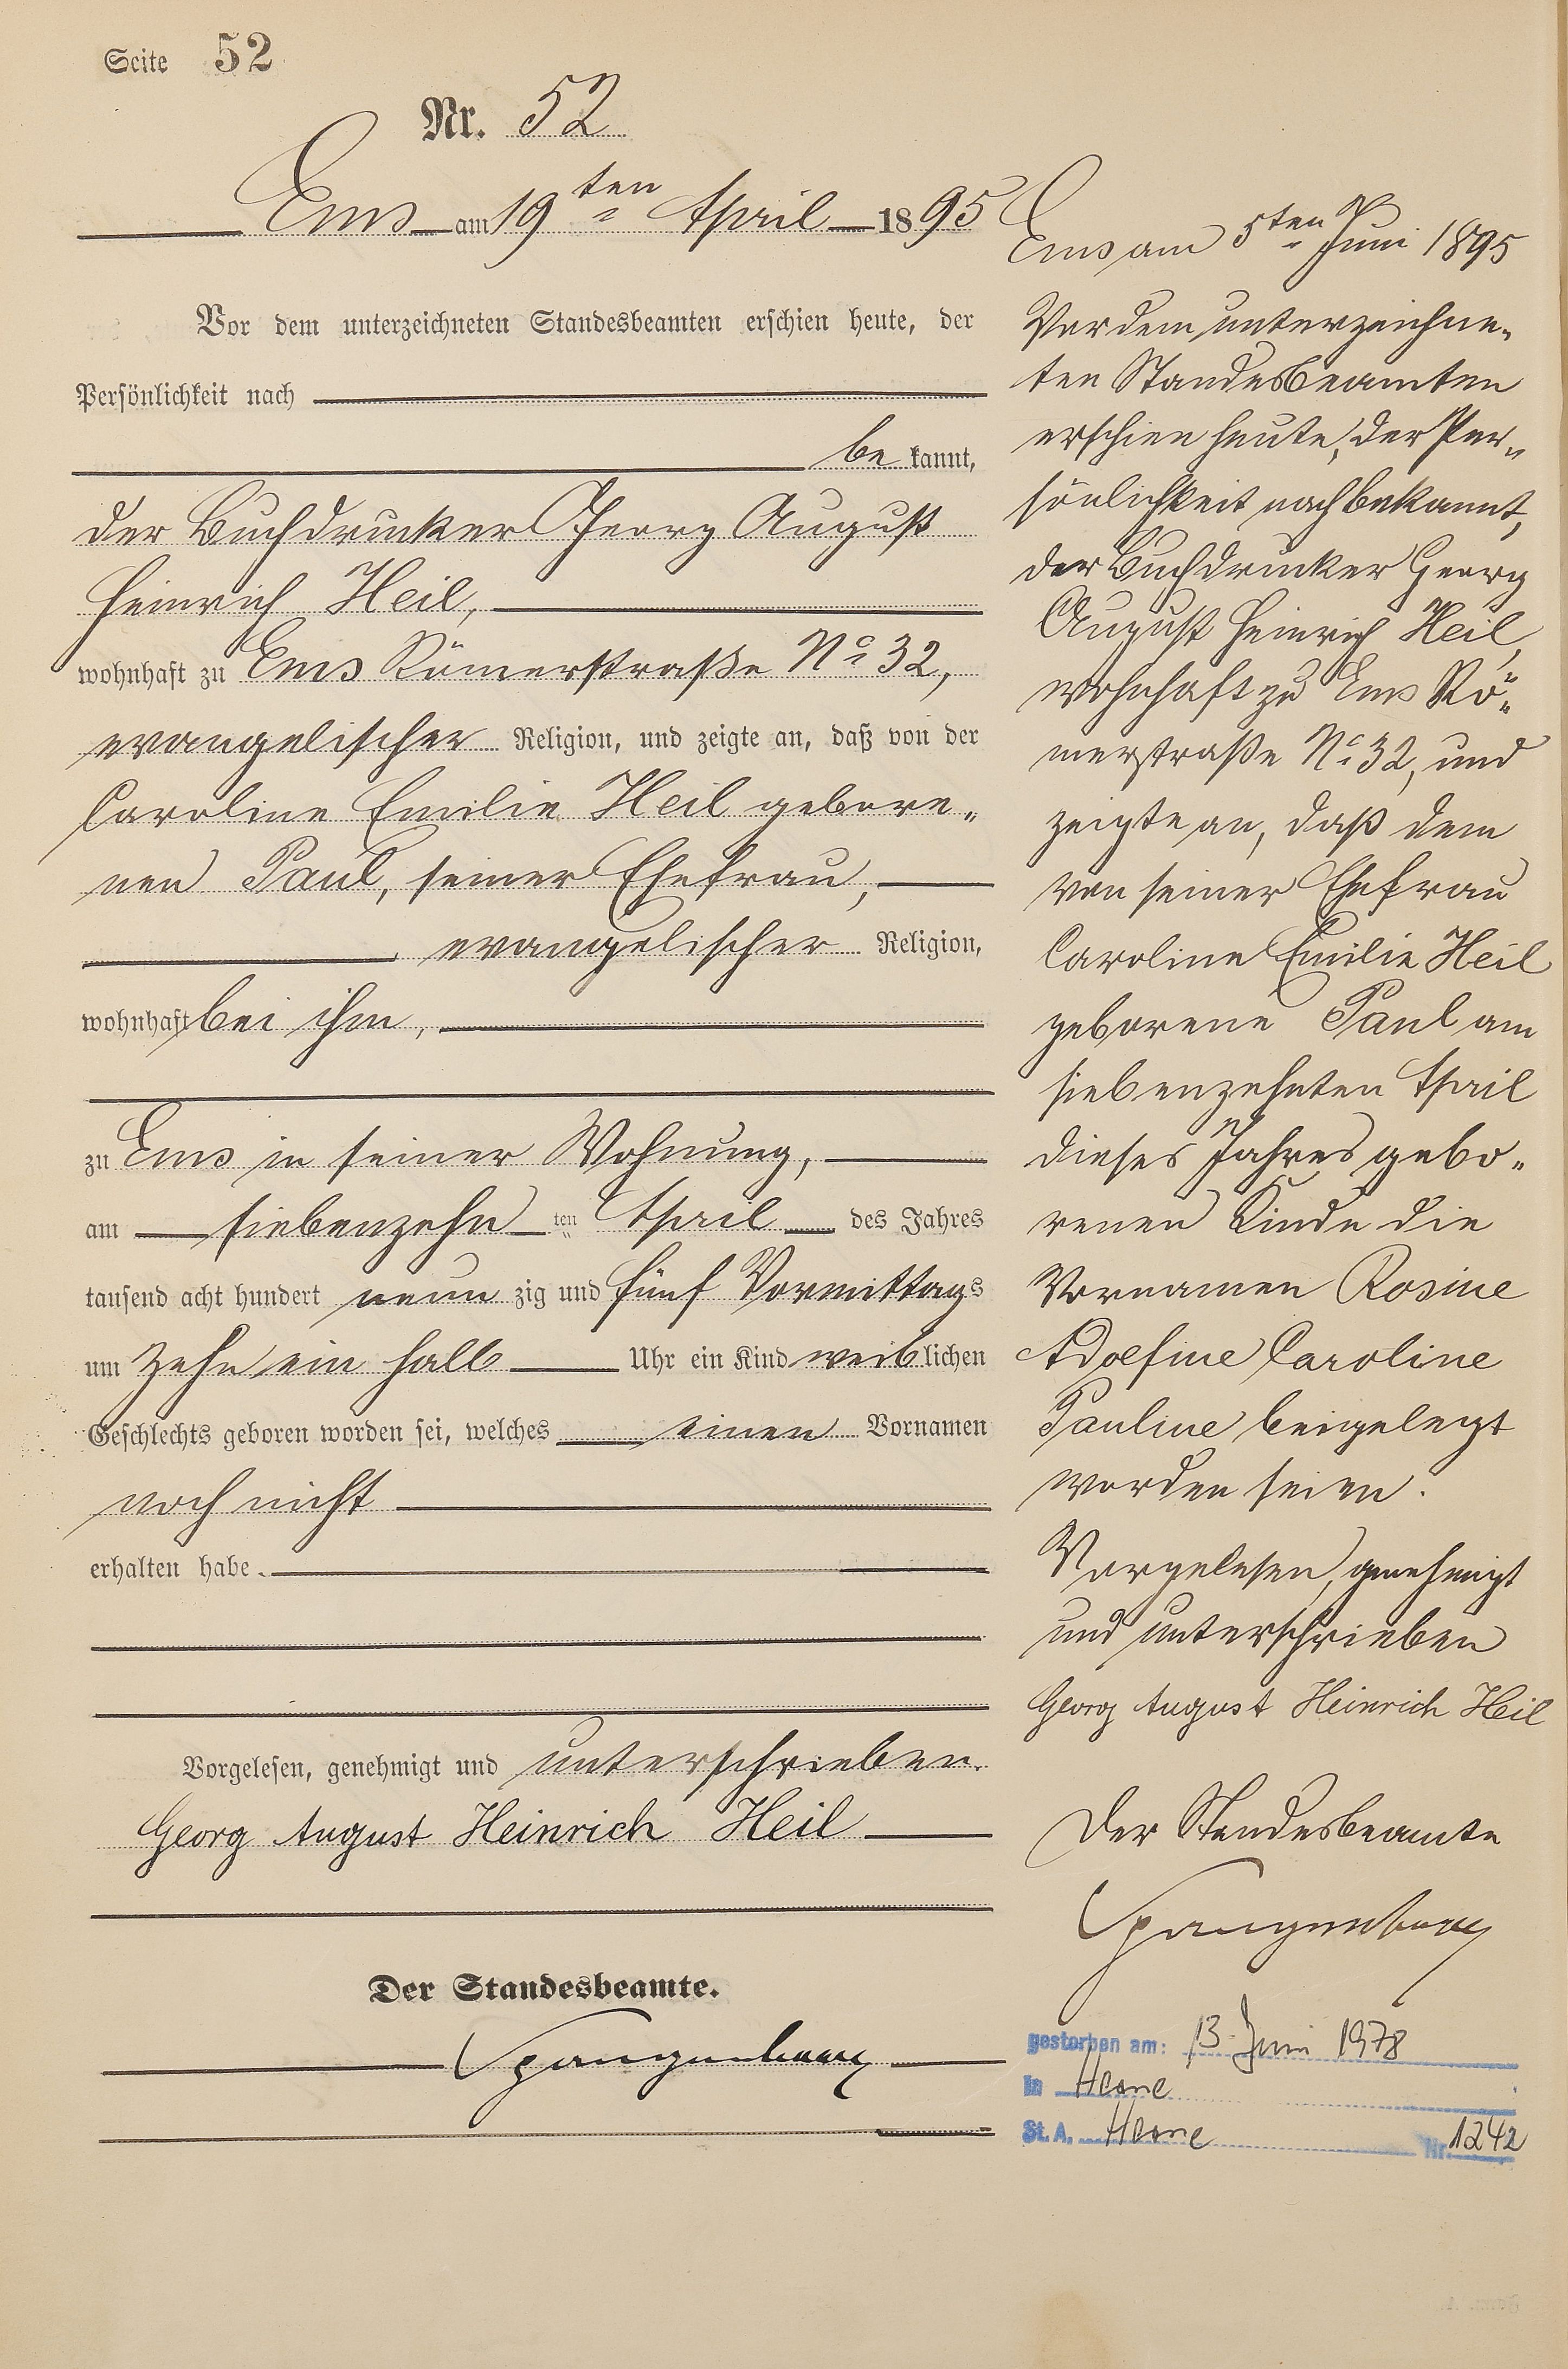 Seite 52
Nr. 52
Ems am 19ten April 1895
Vor dem unterzeichneten Standesbeamten erschien heute, der
Persönlichkeit nach
be kannt,
der Buchdrucker Georg August
Heinrich Heil,
wohnhaft zu Ems Römerstraße No 32,
evangelischer Religion, und zeigte an, daß von der
Caroline Emilie Heil gebore„
nen Paul, seiner Ehefrau,
evangelischer Religion,
wohnhaft bei ihm,
zu Ems in seiner Wohnung,
am siebenzehn ten April des Jahres
tausend acht hundert neun zig und fünf Vormittags
um zehn ein halb Uhr ein Kind weiblichen
Geschlechts geboren worden sei, welches einen Vornamen
noch nicht
erhalten habe.
Vorgelesen, genehmigt und unterschrieben.
Georg August Heinrich Heil
Der Standesbeamte.
Spangenberg
Ems am 5ten Juni 1895
Vor dem unterzeichne„
ten Standesbeamten
erschien heute, der Per„
sönlichkeit nach bekannt,
der Buchdrucker Georg
August Heinrich Heil,
wohnhaft zu Ems Rö„
merstraße No 32, und
zeigte an, daß dem
von seiner Ehefrau
Caroline Emilie Heil
geborene Paul am
siebenzehnten April
dieses Jahres gebo„
renen Kinde die
Vornamen Rosine
Adolfine Caroline
Pauline beigelegt
worden seien.
Vorgelesen, genehmigt
und unterschrieben
Georg August Heinrich Heil
Der Standesbeamte
Spangenberg
gestorben am: 13. Juni 1978
in Herne
St. A. Herne Nr. 1242